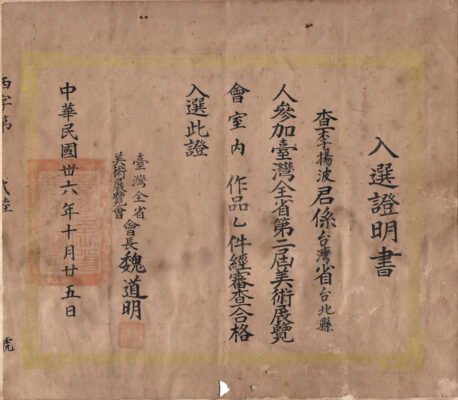 入選證明書
查李揚波君係台灣省台北縣
人參加臺灣全省第二屆美術展覽
會室內 作品乙件經審查合格
入選此證
臺灣全省
美術展覽會 會長魏道明
中華民國卅六年十月廿五日
西字第 貳陸 號